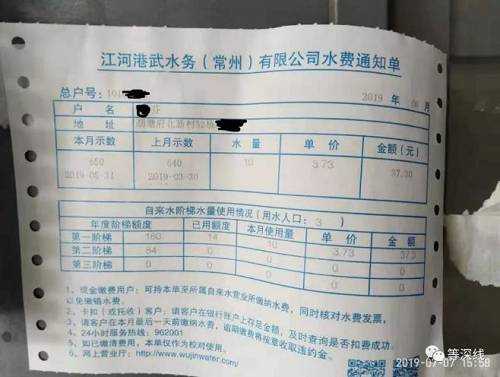 江河港武水务（常州）有限公司水费通知单
总户号：19
2019 年 06 月
户 名 芬
地 址
本月示数 上月示数 水 量 单 价 金额（元）
650 640 10 3.73 37.30
2019-05-31 2019-03-30
自来水阶梯水量使用情况（用水人口：3 ）
年度阶梯额度 已用额度 本月使用量 单 价 金 额
第一阶梯 180 14 10 3.73 37.3
第二阶梯 84 0 0 0 0
第三阶梯 0 0 0 0
1、现金缴费用户：可持本单至所属自来水营业所缴纳水费，同时核对水费发票，
以免缴错水费。
2、卡扣（或托收）客户：请客户在银行账户上存足金额，及时查询是否扣费成功。
3、请客户在本月最后一天前缴纳水费，逾期缴费将按章收取违约金。
4、24小时服务热线：962001
5、如已缴清费用，本单仅作为校对使用。
6、网上营业厅：http://www.wujinwater.com/
等深线
2019-07-07 15:59